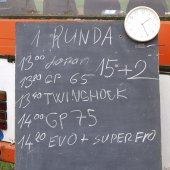 1 RUNDA:
13:00 Japan 15+2
13:20 GP 65
13:40 TWINSHOCK
14:00 GP 75
14:20 EVO + SUPER EVO